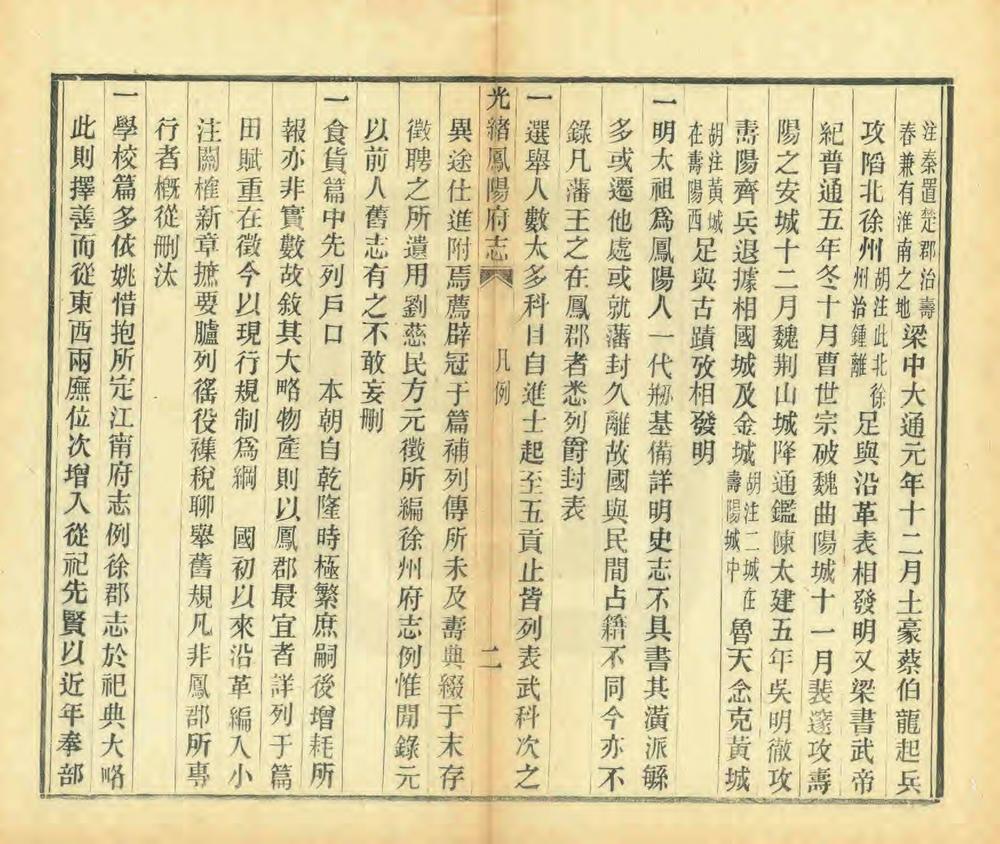 注秦置楚郡治壽春兼有淮南之地梁中大通元年十二月土豪蔡伯龍起兵
攻陷北徐州胡注此北徐州治鍾離足與沿革表相發明又梁書武帝
紀普通五年冬十月曹世宗破魏曲陽城十一月裴邃攻壽
陽之安城十二月魏荊山城降通鑑陳太建五年吳明徹攻
壽陽齊兵退據相國城及金城胡注二城在壽陽城中魯天念克黃城
胡注黃城在壽陽西足與古蹟攷相發明
一明太祖爲鳳陽人一代剏基備詳明史志不具書其潢派緜
多或遷他處或就藩封久離故國與民間占籍不同今亦不
錄凡藩王之在鳳郡者悉列爵封表
一選舉人數太多科目自進士起至五貢止皆列表武科次之
光緒鳳陽府志 凡例 二
異途仕進附焉薦辟冠于篇補列傳所未及壽典綴于末存
徵聘之所遺用劉慈民方元徵所編徐州府志例惟閒錄元
以前人舊志有之不敢妄刪
一食貨篇中先列戶口 本朝自乾隆時極繁庶嗣後增耗所
報亦非實數故敘其大略物產則以鳳郡最宜者詳列于篇
田賦重在徵今以現行規制爲綱 國初以來沿革編入小
注關榷新章摭要臚列徭役襍稅聊舉舊規凡非鳳郡所專
行者槪從刪汰
一學校篇多依姚惜抱所定江甯府志例徐郡志於祀典大略
此則擇善而從東西兩廡位次增入從祀先賢以近年奉部